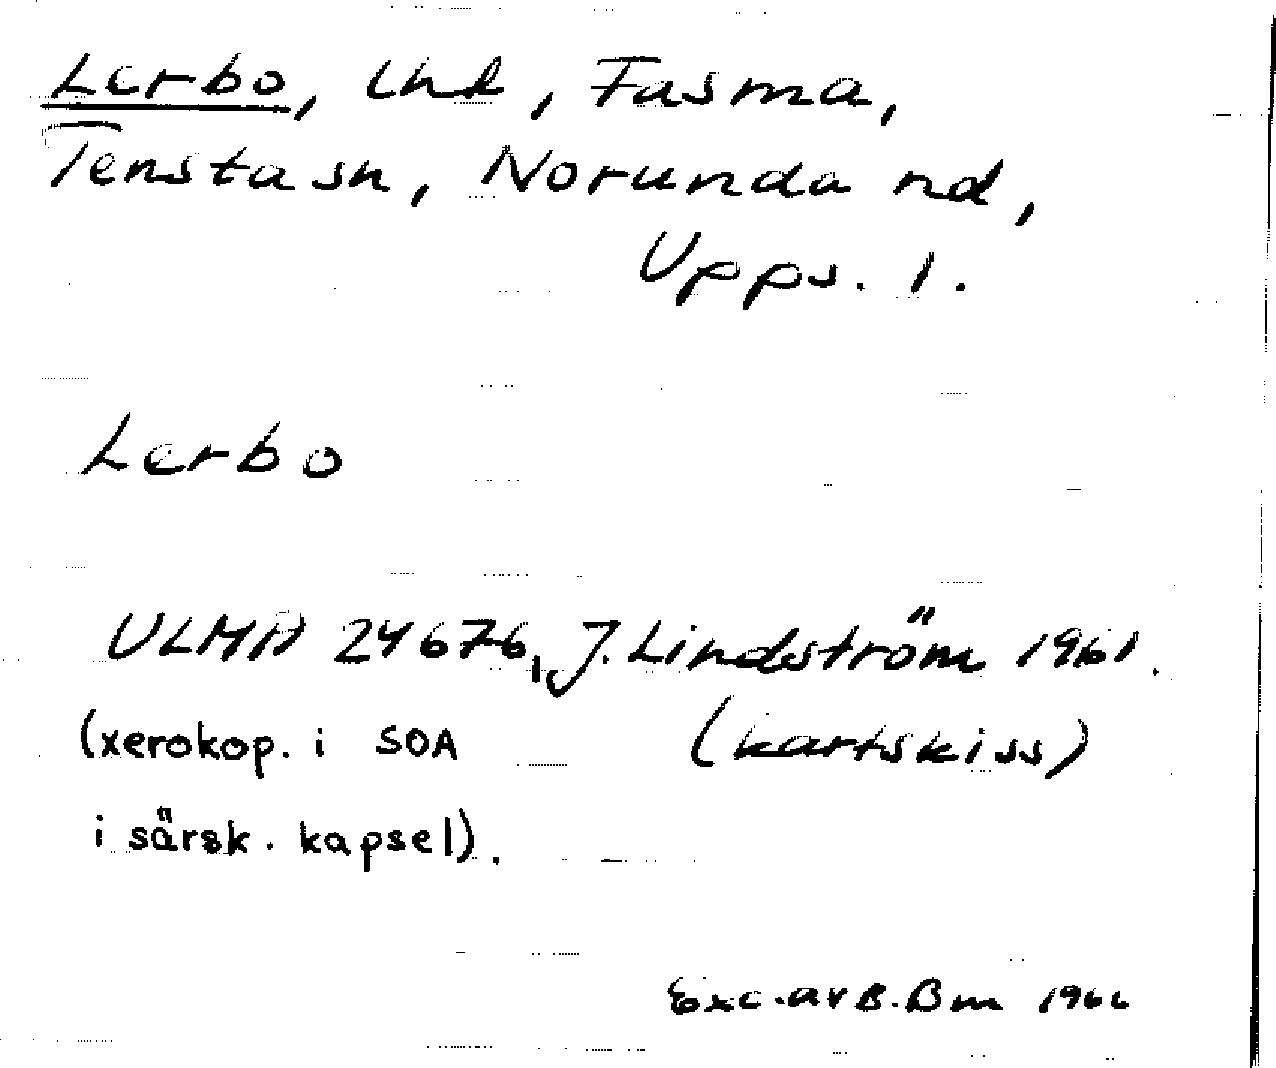 Lerbo, lht, Fasma,
Tensta sn, Norunda hd,
Upps. l.
Lerbo
ULMA 24676, J. Lindström 1961.
(xerokop. i SOA (kartskiss)
i särsk. kapsel).
Exc. av B. Bm